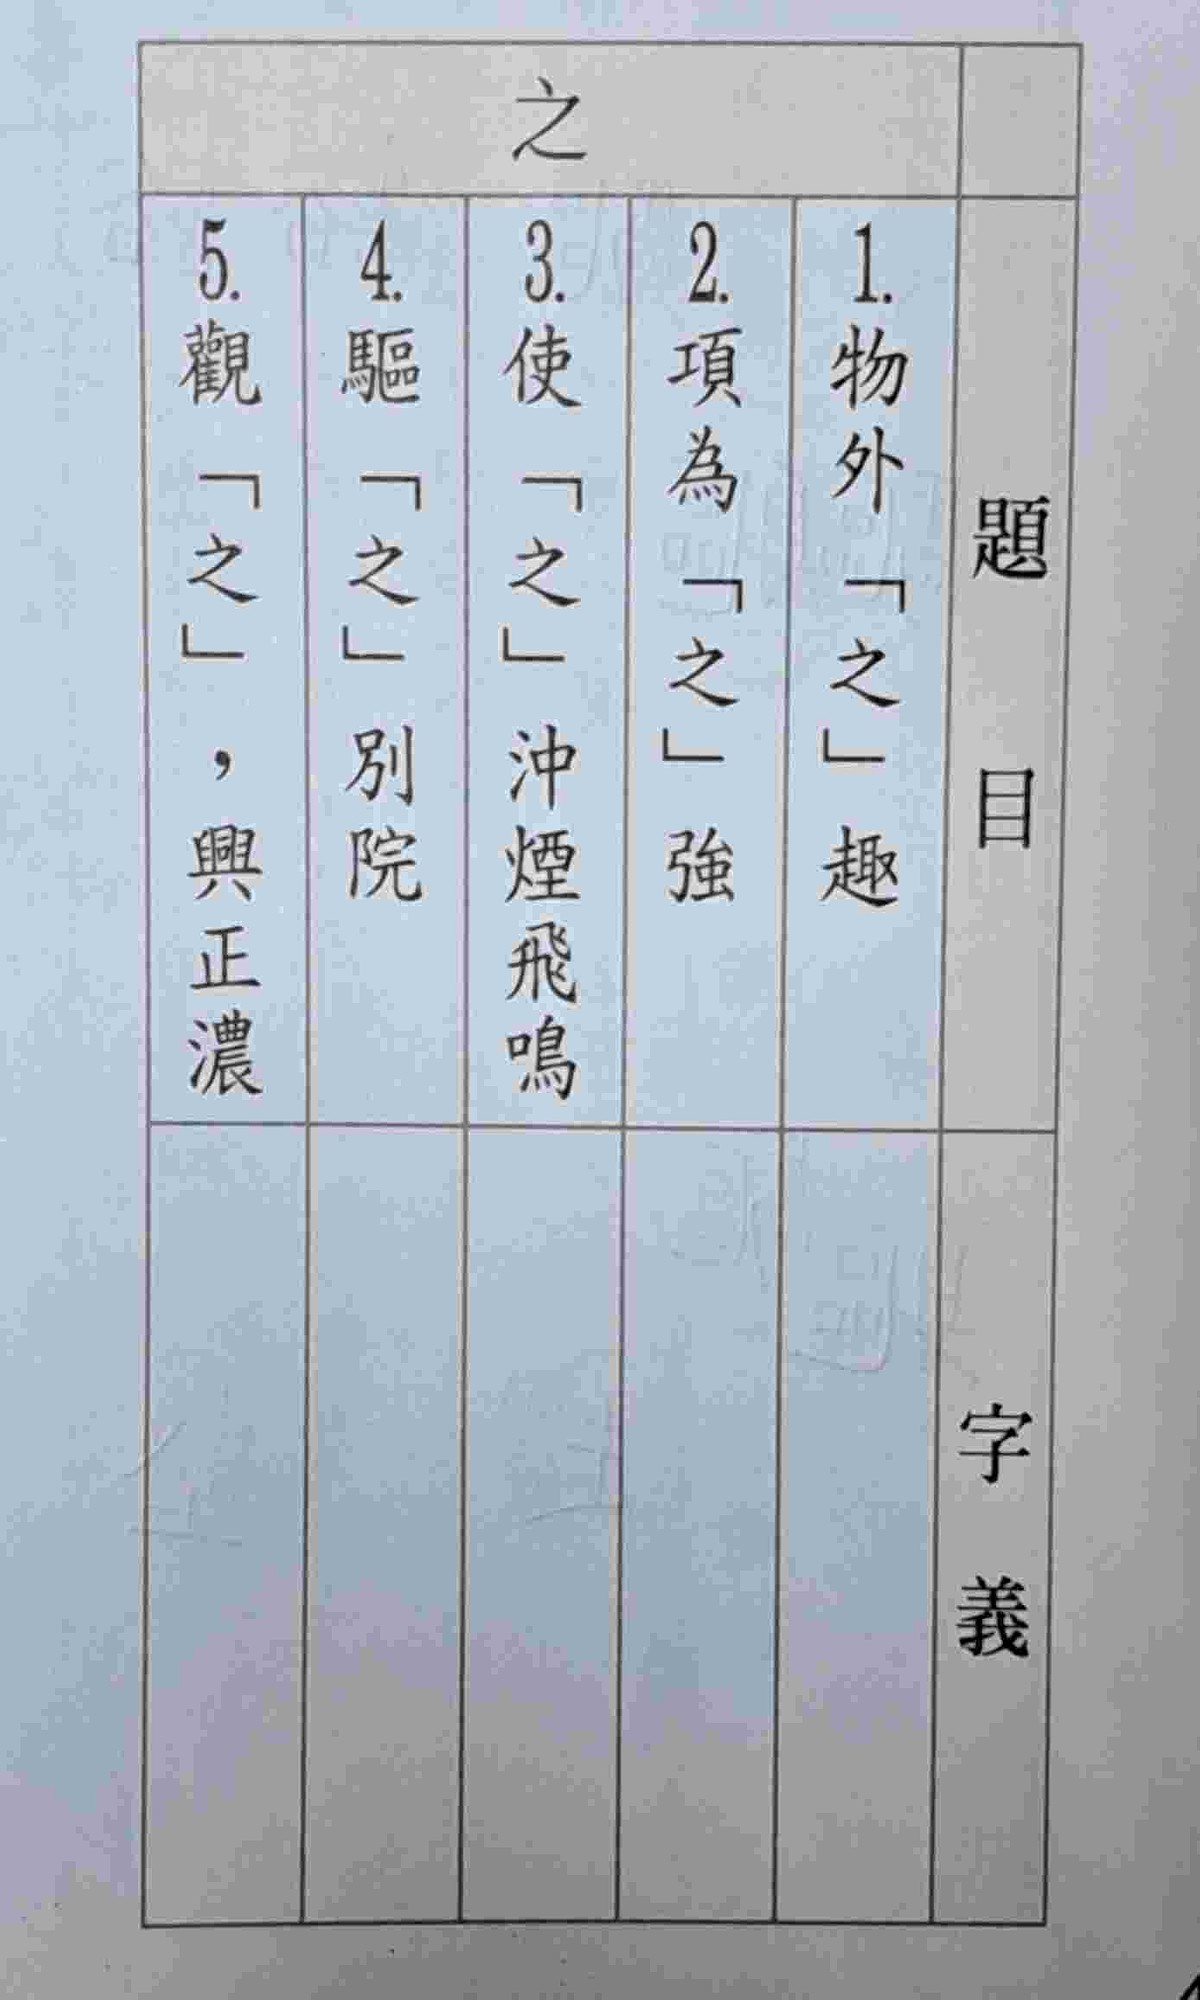 之
題目
字義
1.物外「之」趣
2.項為「之」強
3.使「之」沖煙飛鳴
4.驅「之」別院
5.觀「之」，興正濃